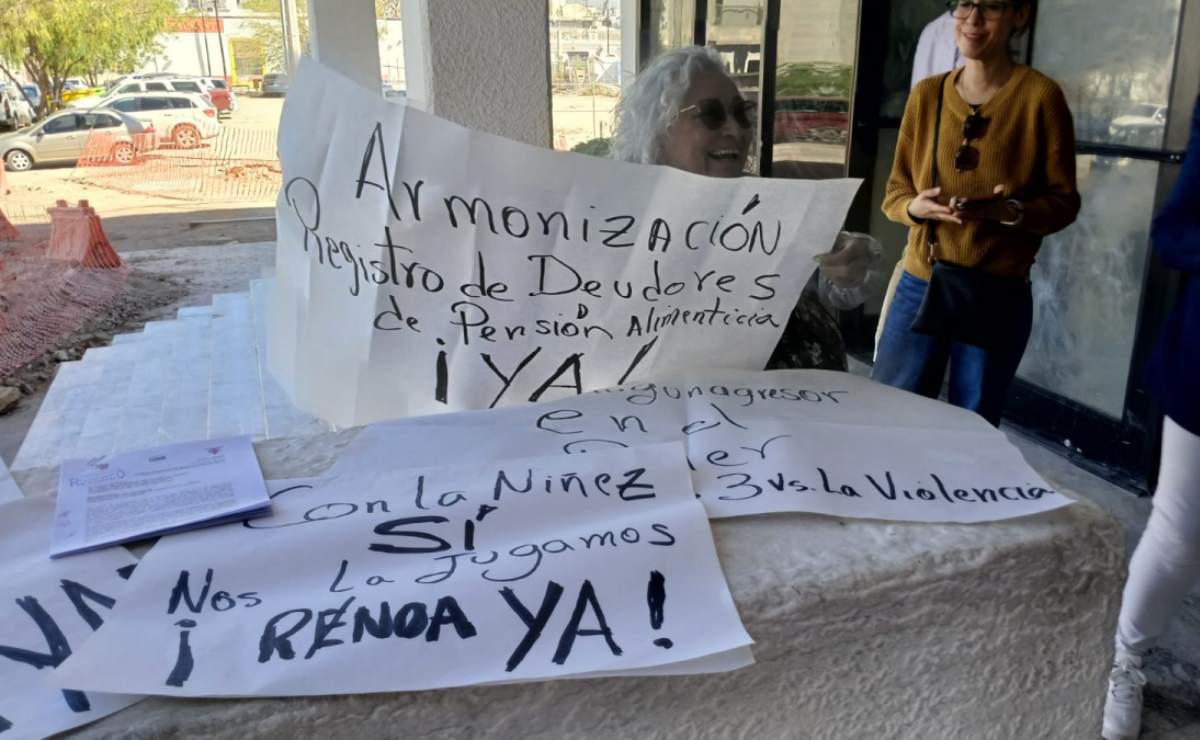 Armonización
Registro de Deudores
de Pensión Alimenticia
¡YA!
agresor
en el
3 vs. La Violencia
Con la Niñez
SÍ
Nos La Jugamos
¡RENOA YA!